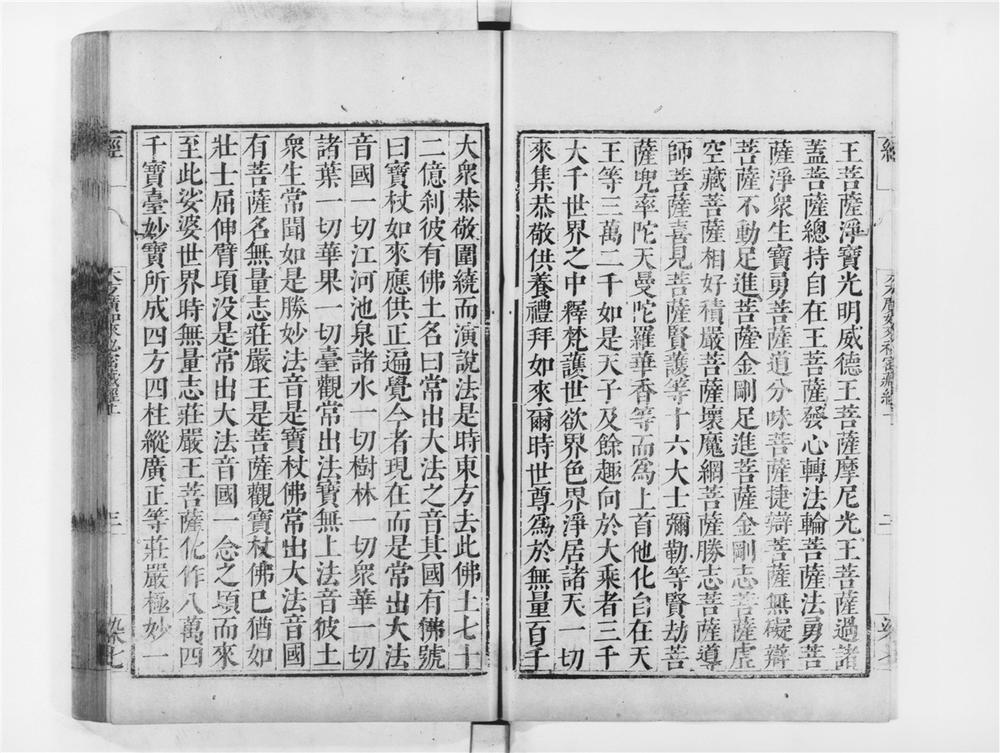 王菩薩淨寶光明威德王菩薩摩尼光王菩薩過諸
蓋菩薩總持自在王菩薩發心轉法輪菩薩法勇菩
薩淨衆生寶勇菩薩道分味菩薩捷辯菩薩無礙辯
菩薩不動足進菩薩金剛足進菩薩金剛志菩薩虛
空藏菩薩相好積嚴菩薩壞魔網菩薩勝志菩薩導
師菩薩喜見菩薩賢護等十六大士彌勒等賢劫菩
薩兜率陀天曼陀羅華香等而爲上首他化自在天
王等三萬二千如是天子及餘趣向於大乘者三千
大千世界之中釋梵護世欲界色界淨居諸天一切
來集恭敬供養禮拜如來爾時世尊爲於無量百千
大衆恭敬圍繞而演說法是時東方去此佛土七十
二億刹彼有佛土名曰常出大法之音其國有佛號
曰寶杖如來應供正遍覺今者現在而是常出大法
音國一切江河池泉諸水一切樹林一切衆華一切
諸葉一切華果一切臺觀常出法寶無上法音彼土
衆生常聞如是勝妙法音是寶杖佛常出大法音國
有菩薩名無量志莊嚴王是菩薩觀寶杖佛已猶如
壯士屈伸臂頃没是常出大法音國一念之頃而來
至此娑婆世界時無量志莊嚴王菩薩化作八萬四
千寶臺妙寶所成四方四柱縱廣正等莊嚴極妙一
經
大方廣如來秘密藏經上
三